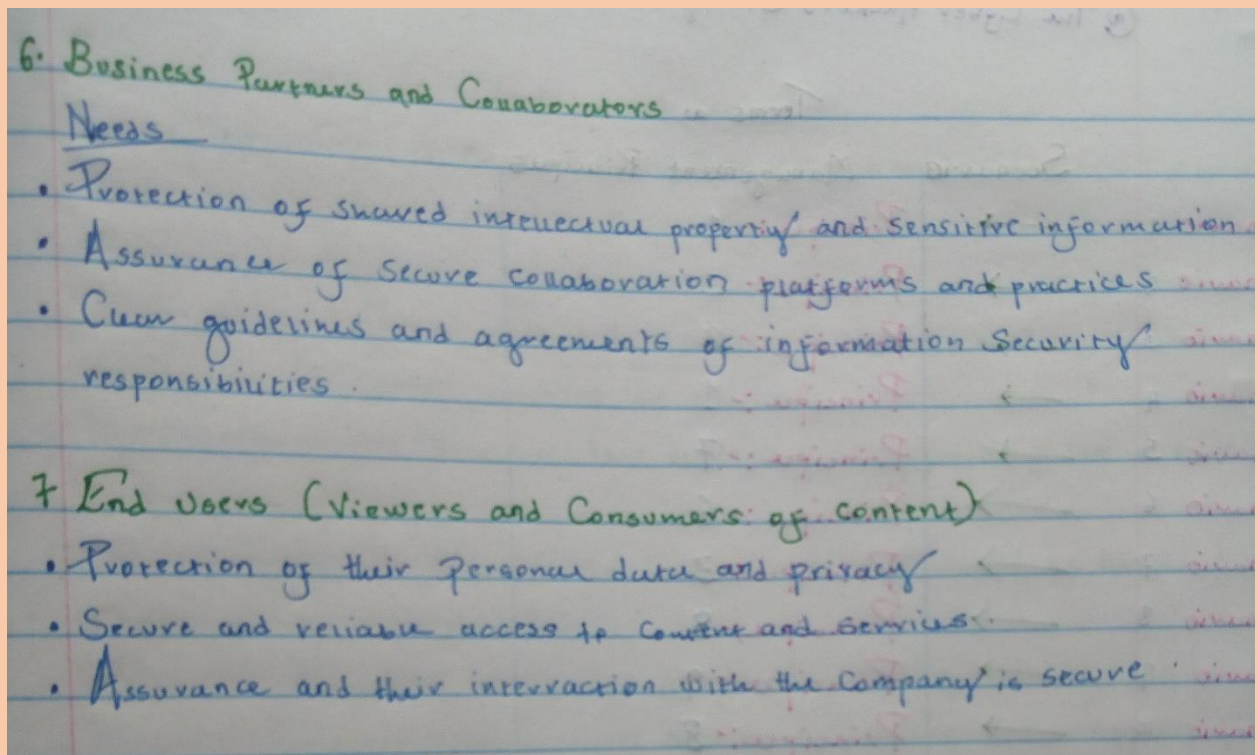 6. Business Partners and Collaborators
Needs
• Protection of shared intellectual property and sensitive information
• Assurance of secure collaboration platforms and practices
• Clear guidelines and agreements of information Security
responsibilities.
7 End Users (Viewers and Consumers of content)
• Protection of their personal data and privacy
• Secure and reliable access to content and services.
• Assurance and their interraction with the Company is secure.